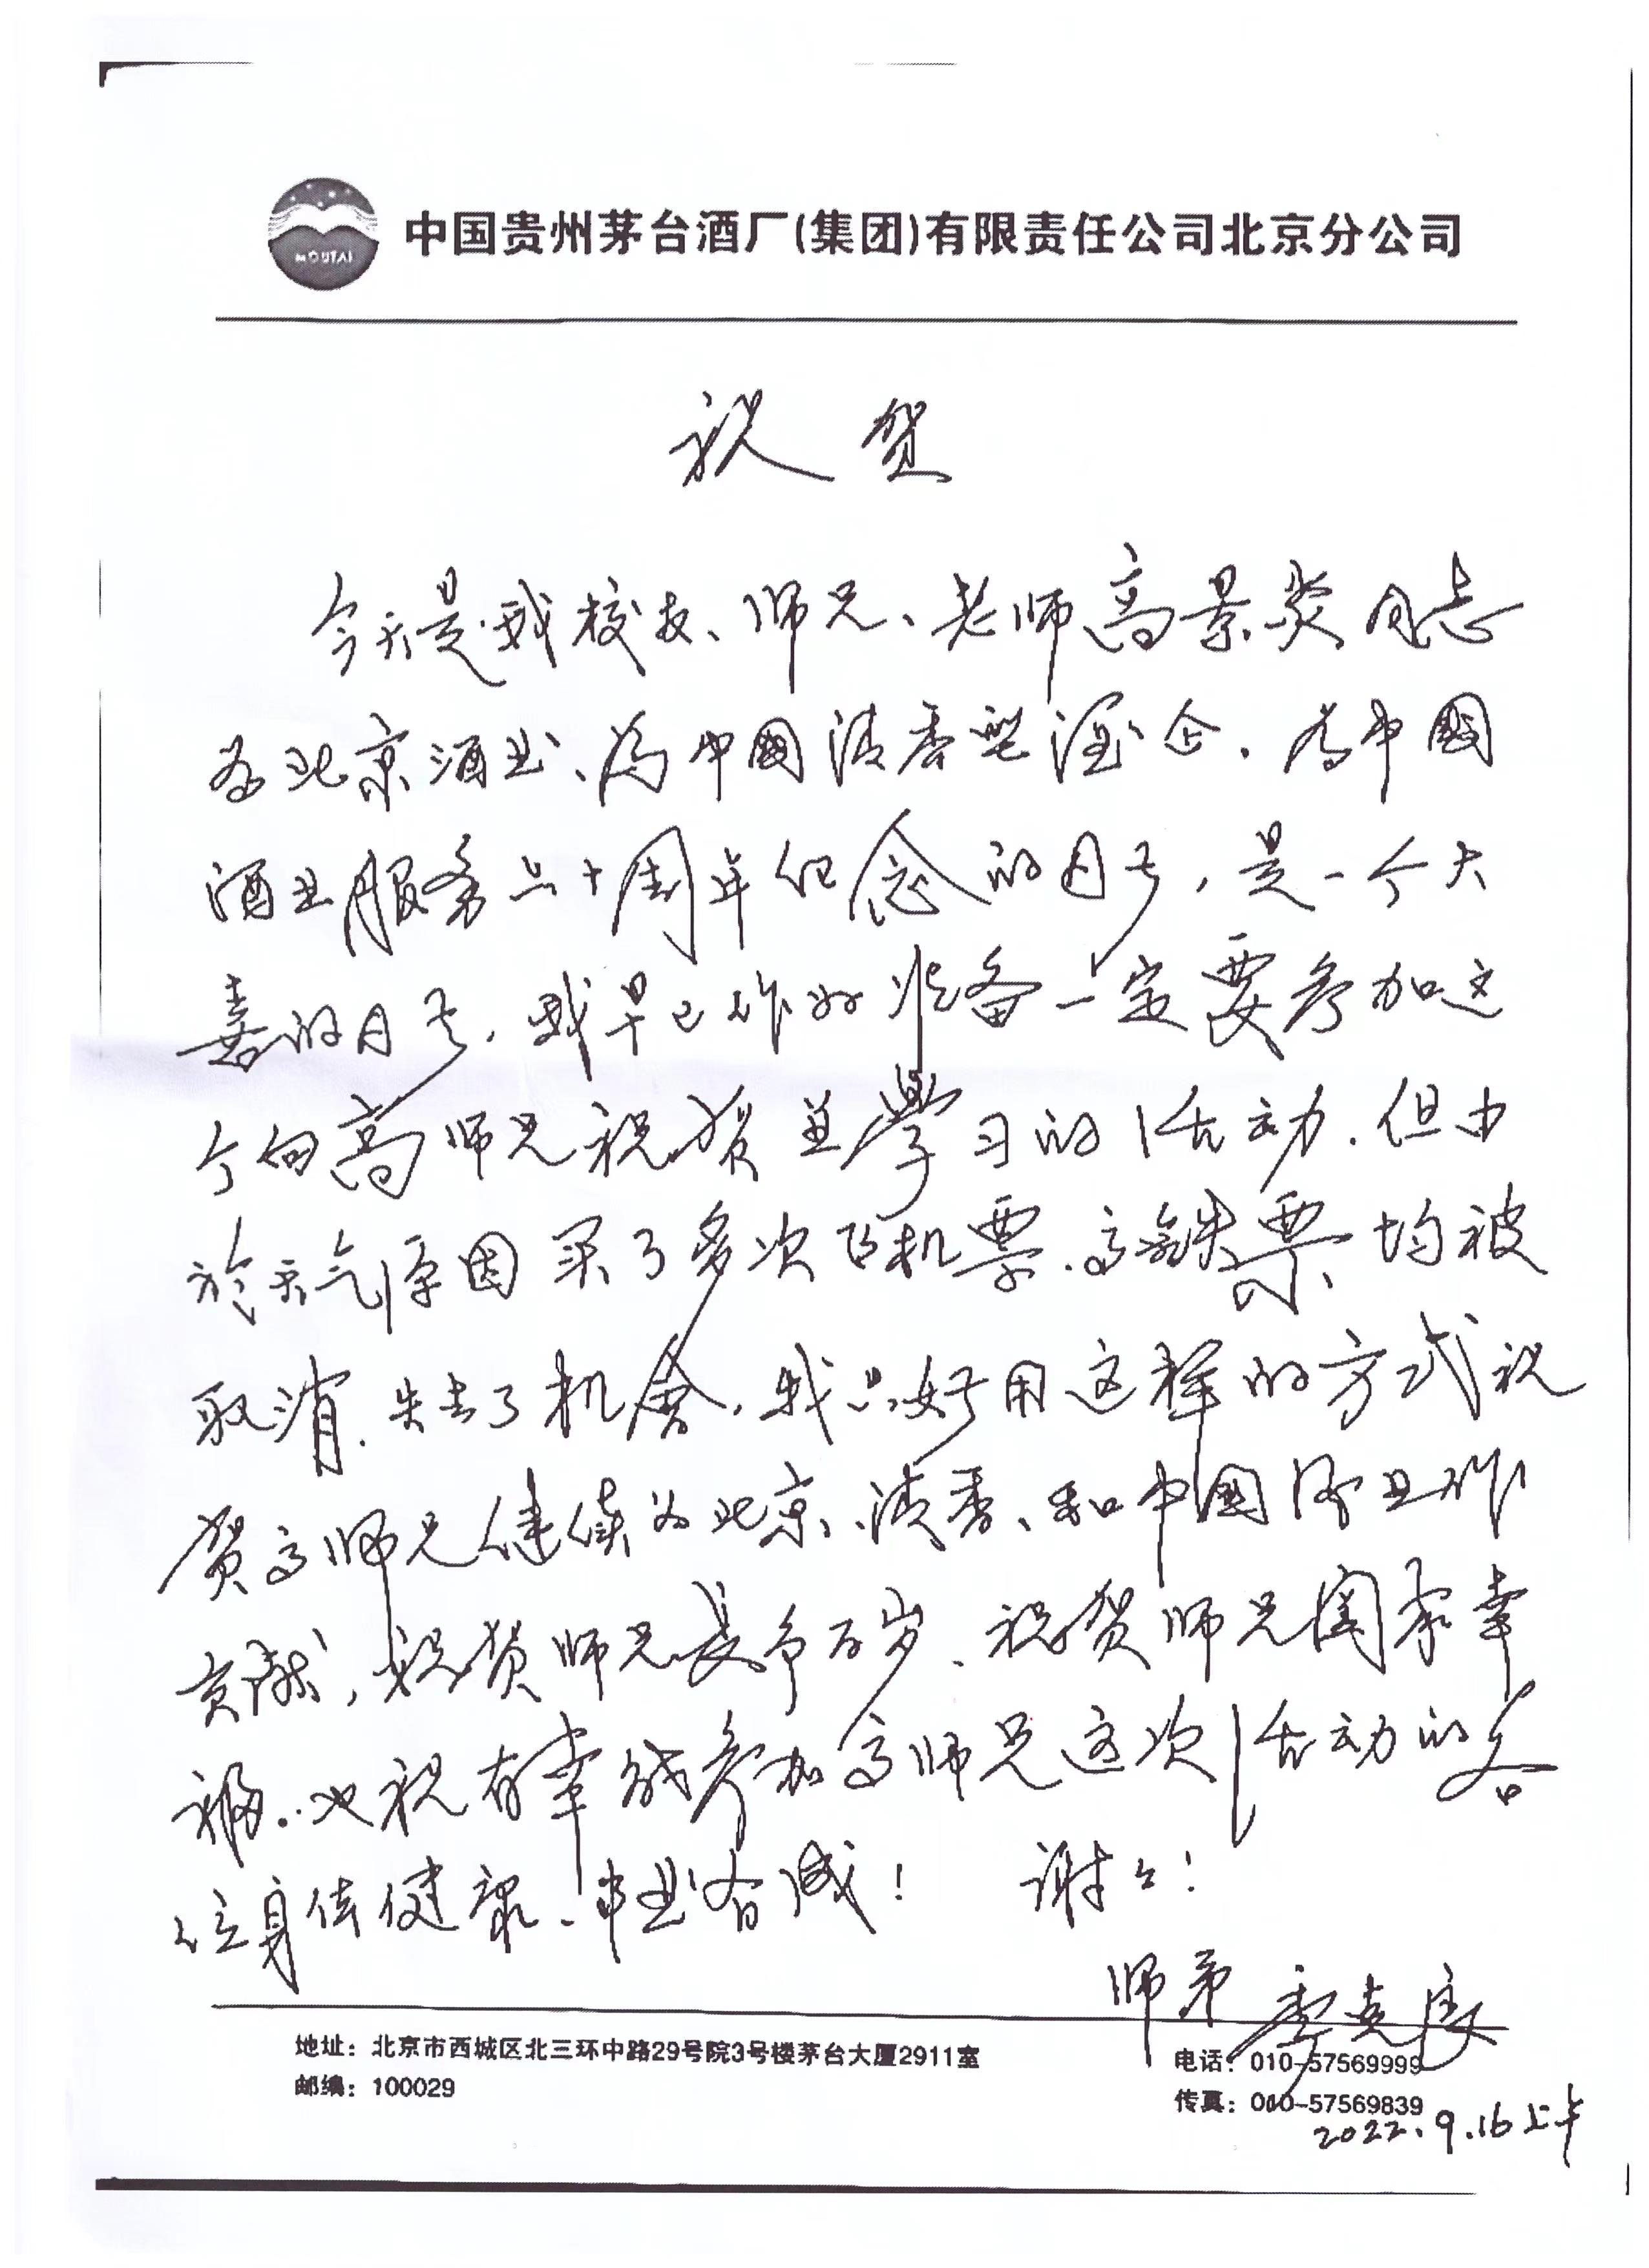 MOUTAI
中国贵州茅台酒厂(集团)有限责任公司北京分公司
祝贺
今天是我校友、师兄、老师高景炎同志
为北京酒业、为中國清香型酒企、为中國
酒业服务六十周年纪念的日子,是一个大
喜的日子,我早已作好准备一定要参加这
个向高师兄祝贺并學习的活动.但由
於天气原因买了多次飞机票.高鉄票均被
取消.失去了机會.我只好用这样的方式祝
贺高师兄继续为北京、清香、和中國酒业作
贡献,祝贺师兄长命百岁、祝贺师兄阖家幸
福.也祝有幸能参加高师兄这次活动的各
位身体健康、事业有成! 谢谢!
师弟 季克良
地址:北京市西城区北三环中路29号院3号楼茅台大厦2911室
电话:010-57569999
邮编:100029
传真:010-57569839
2022.9.16上午